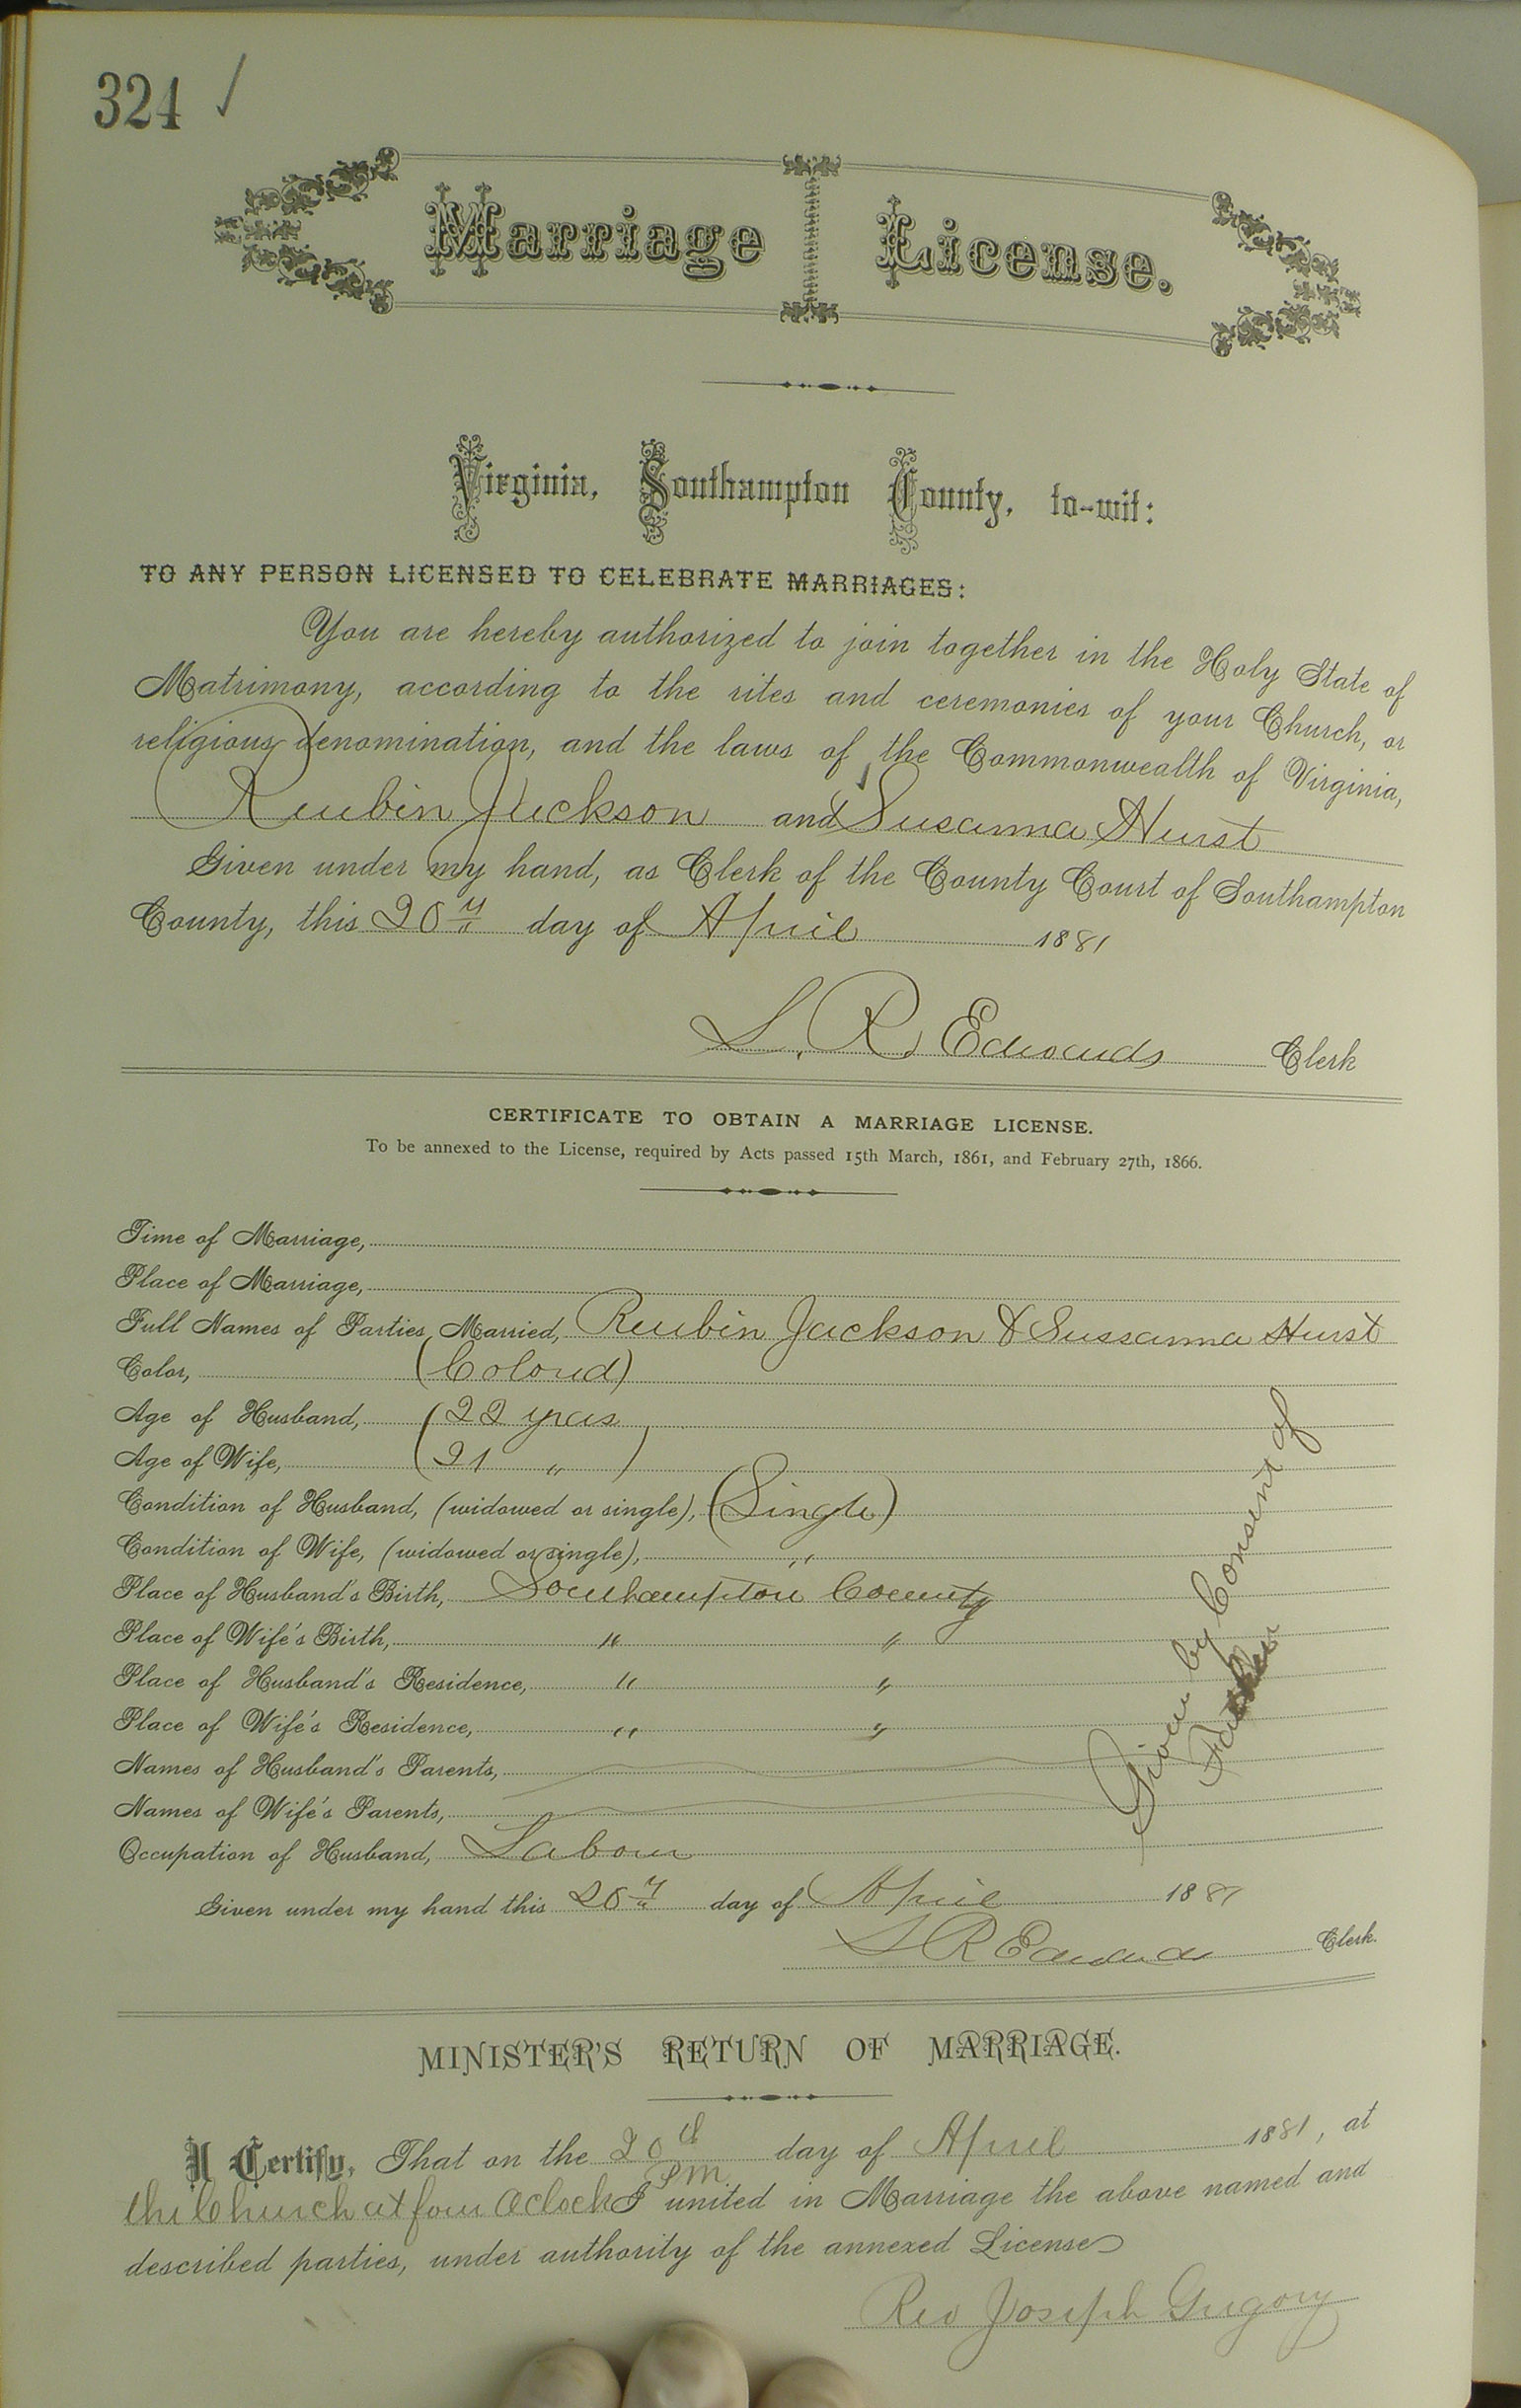 324 ✓
Marriage License.
Virginia, Southampton County, to-wit:
TO ANY PERSON LICENSED TO CELEBRATE MARRIAGES:
You are hereby authorized to join together in the Holy State of
Matrimony, according to the rites and ceremonies of your Church, or
religious denomination, and the laws of the Commonwealth of Virginia,
Reubin Jackson and Susanna Hurst
Given under my hand, as Clerk of the County Court of Southampton
County, this 20th day of April 1881
L. R. Edwards Clerk
CERTIFICATE TO OBTAIN A MARRIAGE LICENSE.
To be annexed to the License, required by Acts passed 15th March, 1861, and February 27th, 1866.
Time of Marriage,
Place of Marriage,
Full Names of Parties Married, Reubin Jackson & Sussanna Hurst
Color, (Colord)
Age of Husband, (22 years
Age of Wife, (21 " )
Condition of Husband, (widowed or single), (Single)
Condition of Wife, (widowed or single), "
Place of Husband's Birth, Southampton County
Place of Wife's Birth, " "
Place of Husband's Residence, " "
Place of Wife's Residence, " "
Names of Husband's Parents,
Names of Wife's Parents,
Occupation of Husband, Labour
Given by Consent of
Father
Given under my hand this 20th day of April 1881
L R Edwards Clerk.
MINISTER'S RETURN OF MARRIAGE.
I Certify, That on the 20th day of April 1881, at
the Church at four Oclock PM I united in Marriage the above named and
described parties, under authority of the annexed License
Rev Joseph Gregory